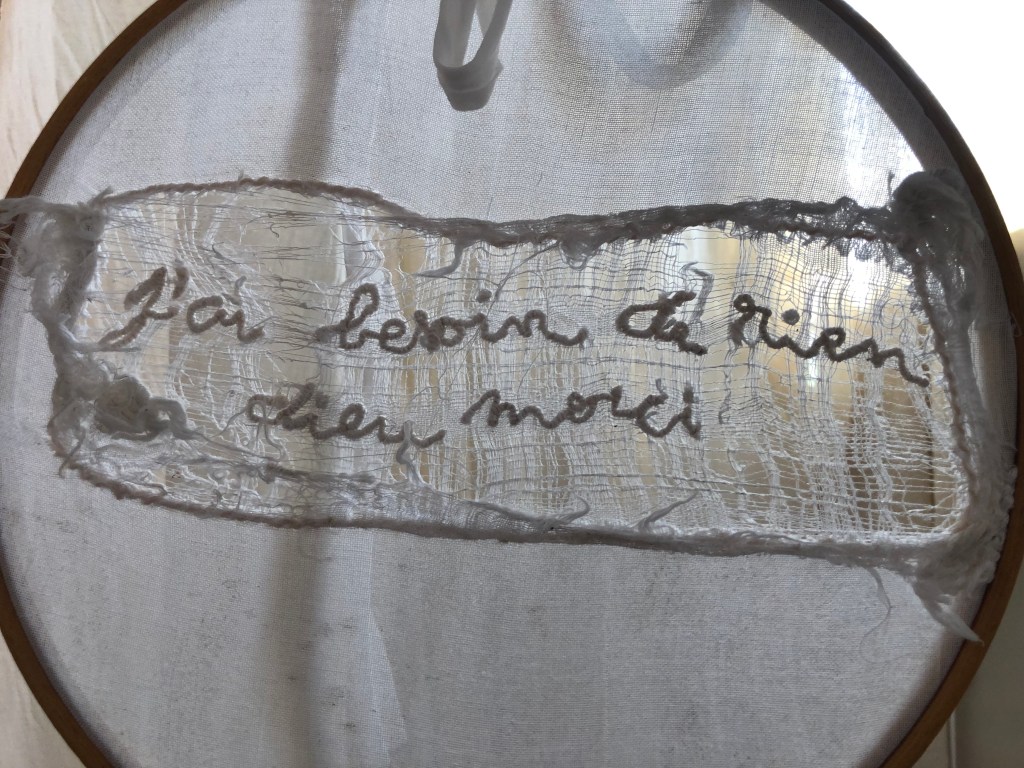 J'ai besoin de rien
dieu merci